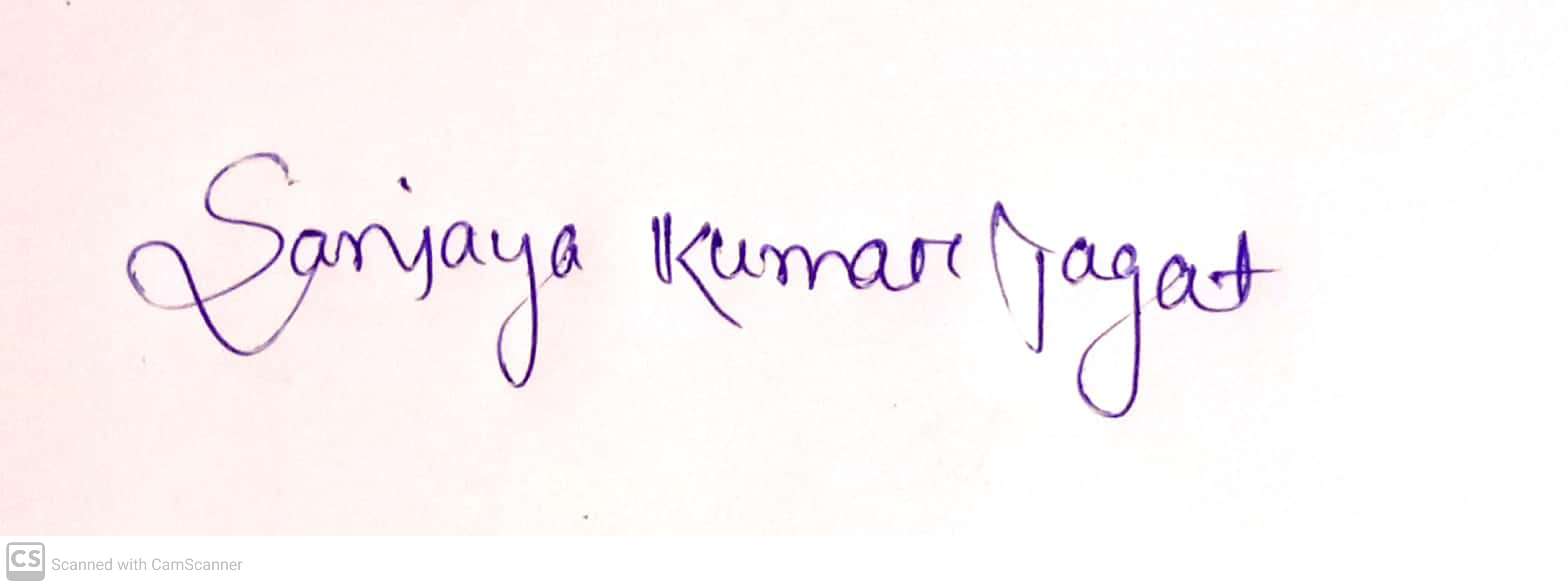 Sanjaya Kumar Jagat
CS Scanned with CamScanner